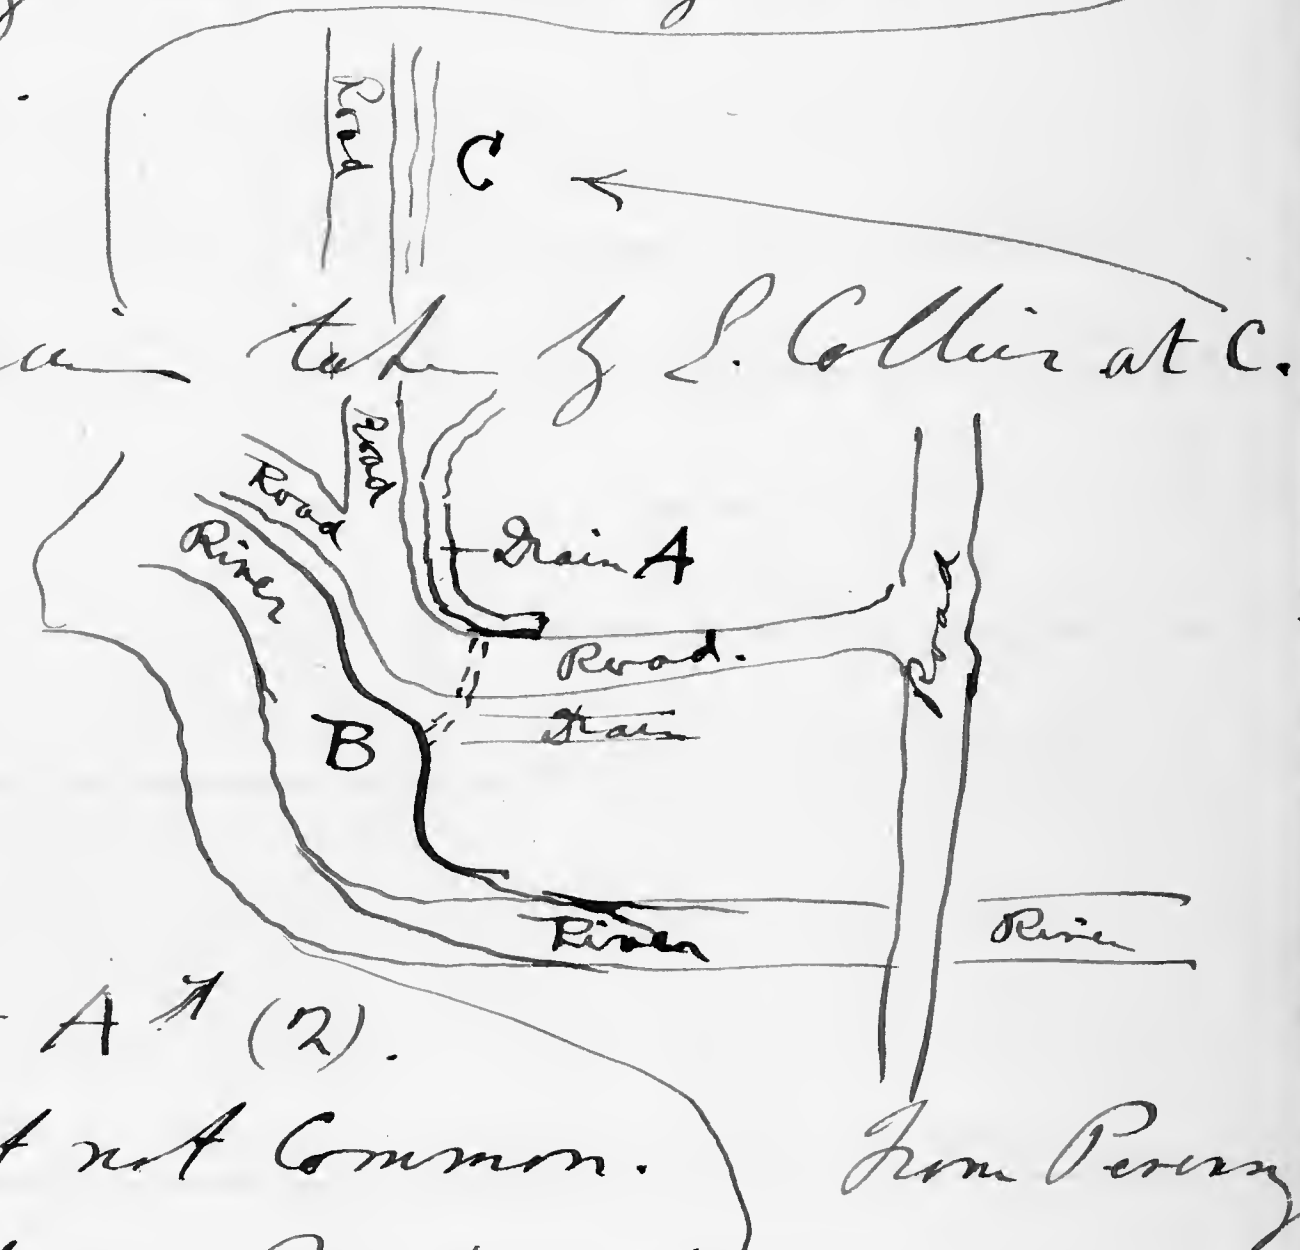 Road
C
taken by L. Collins at C.
Road
Road
River
Drain A
Road.
Road
Drain
B
River
River
A (2).
not Common.
From Pevensey